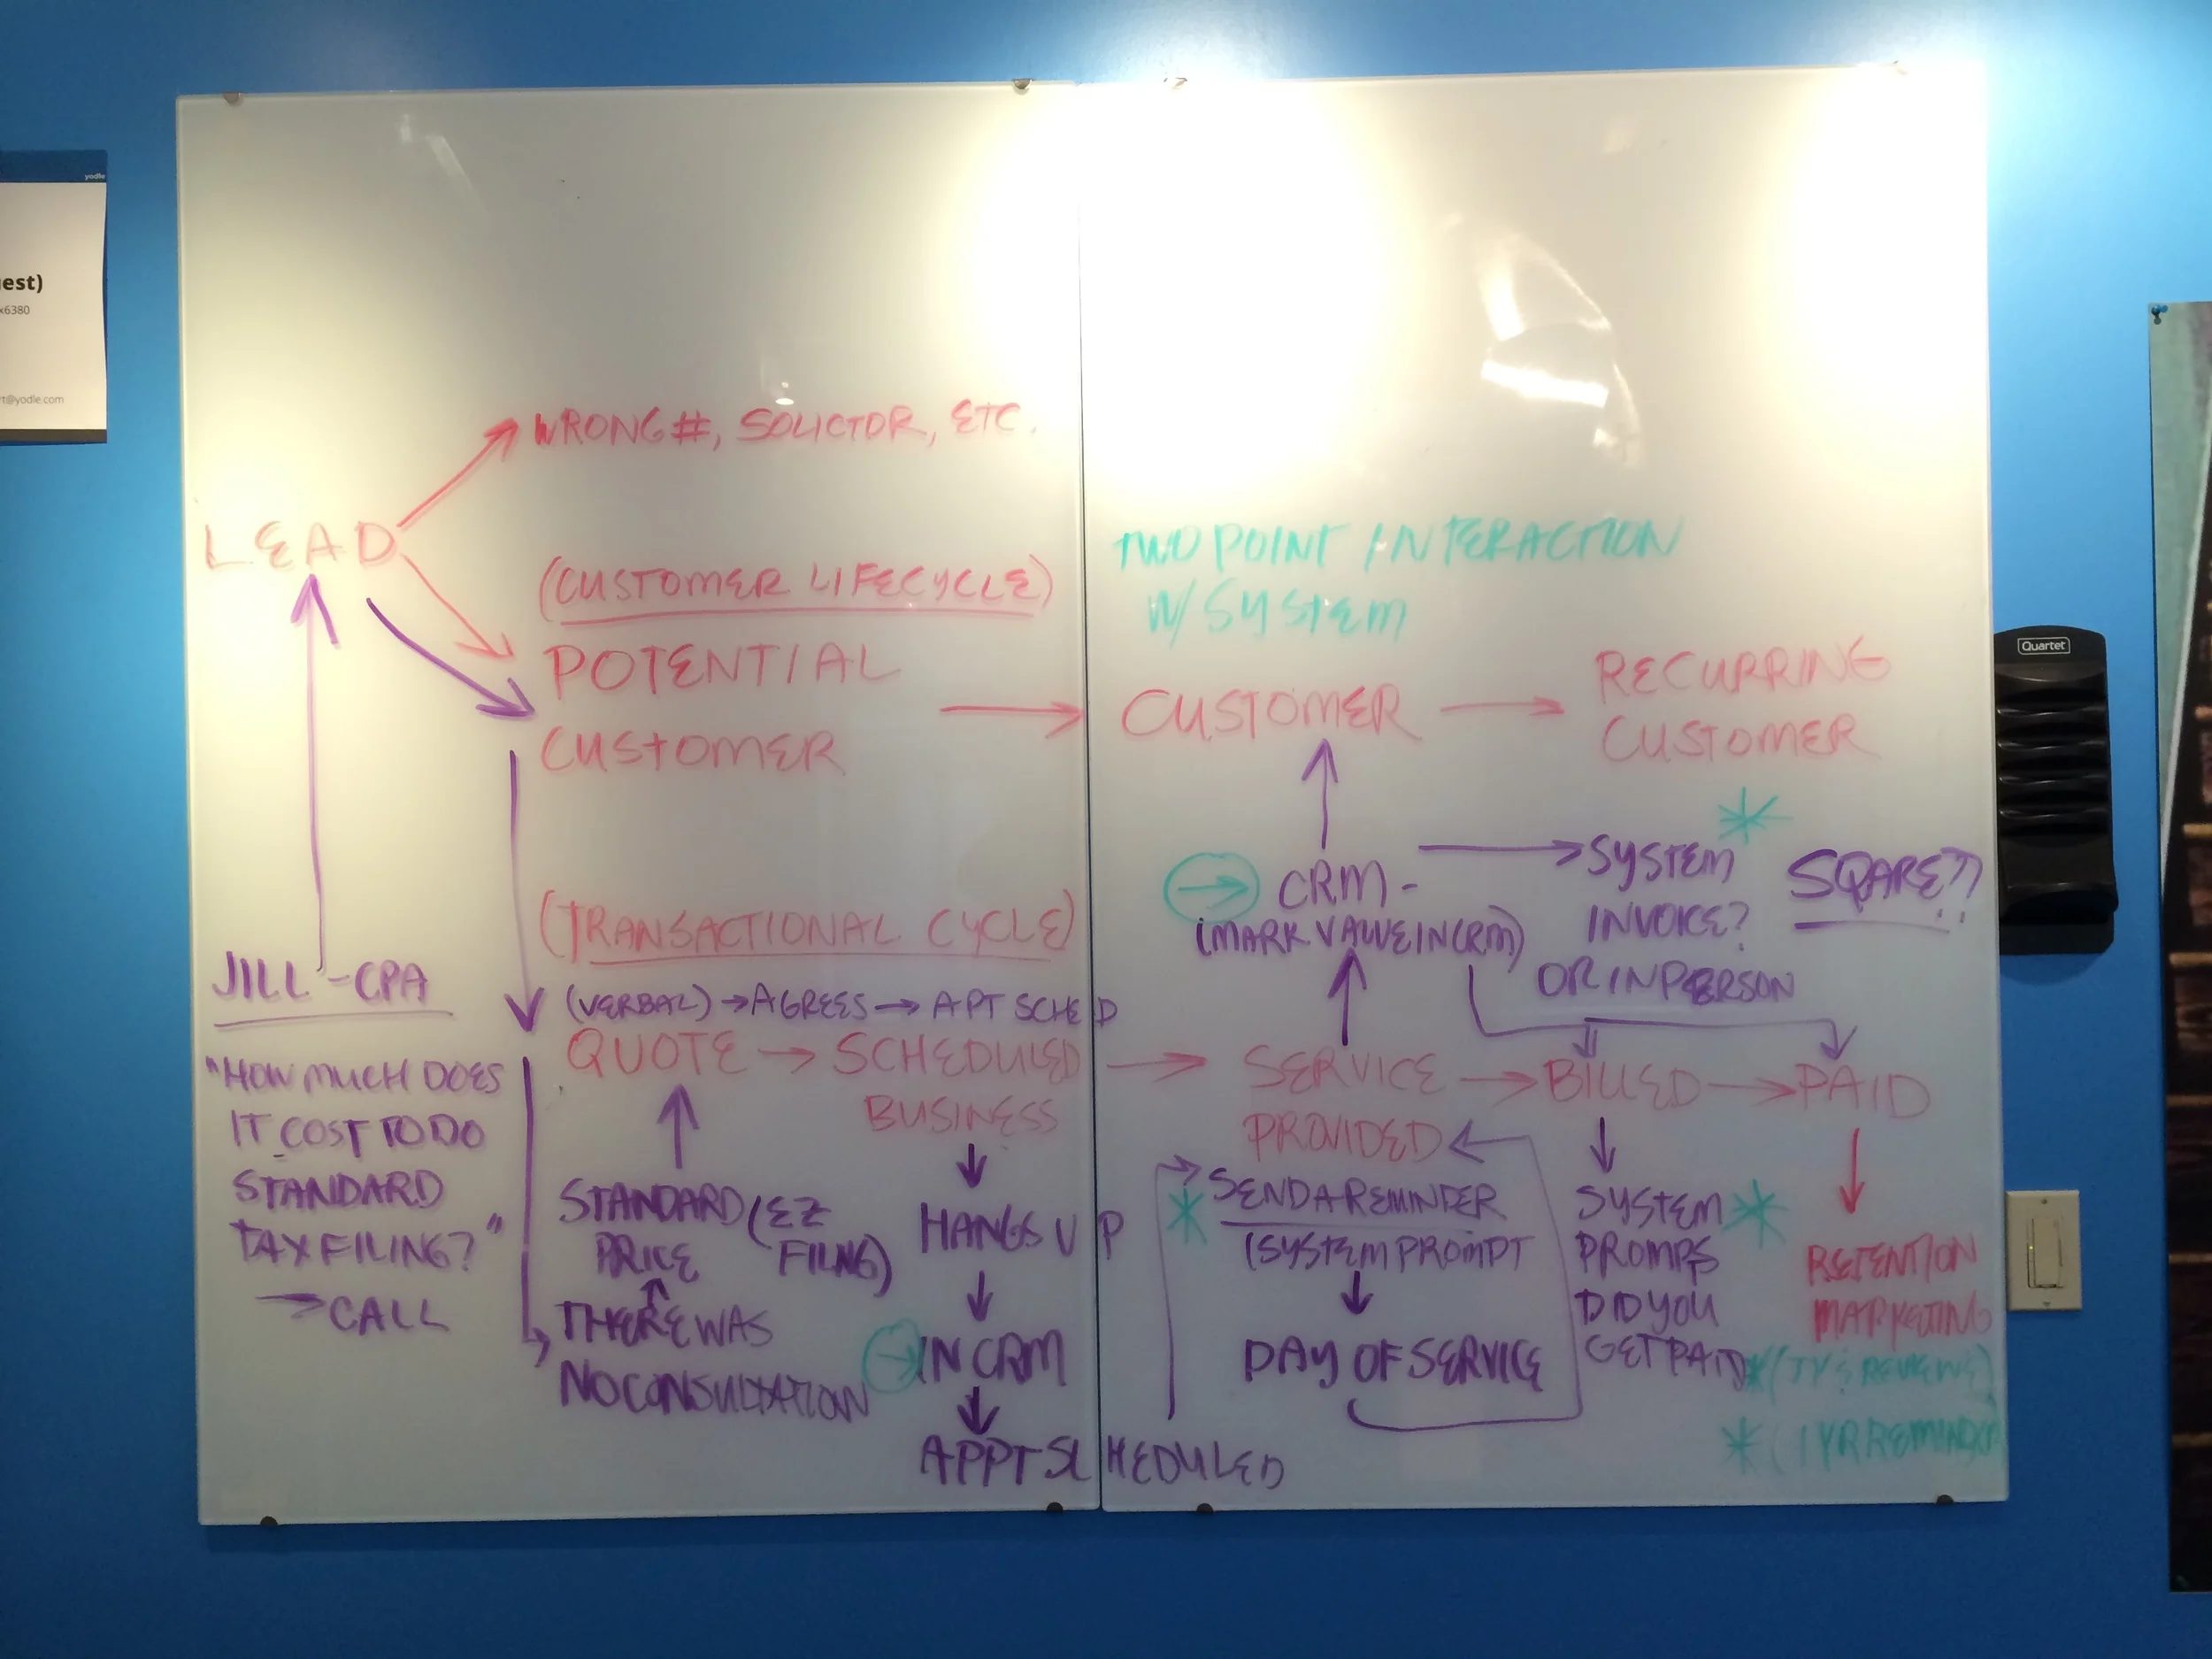 yodle
est)
x6380
rt@yodle.com
WRONG #, SOLICTOR, ETC.
LEAD
(CUSTOMER LIFECYCLE)
POTENTIAL
CUSTOMER
TWO POINT INTERACTION
W/ SYSTEM
CUSTOMER
RECURRING
CUSTOMER
Quartet
(TRANSACTIONAL CYCLE)
(VERBAL) → AGREES → APT SCHED
QUOTE → SCHEDULED
BUSINESS
→ SERVICE → BILLED → PAID
PROVIDED
→ CRM -
(MARK VALUE IN CRM)
→ SYSTEM *
INVOICE?
OR IN PERSON
SQARE??
JILL - CPA
"HOW MUCH DOES
IT COST TO DO
STANDARD
TAX FILING?"
→ CALL
STANDARD (EZ
PRICE FILNG)
THERE WAS
NO CONSULTATION
HANGS UP
→ IN CRM
APPT SCHEDULED
* SEND A REMINDER
(SYSTEM PROMPT
DAY OF SERVICE
SYSTEM *
PROMPTS
DID YOU
GET PAID
RETENTION
MARKETING
* (TY & REVIEWS)
* (1 YR REMINDER)